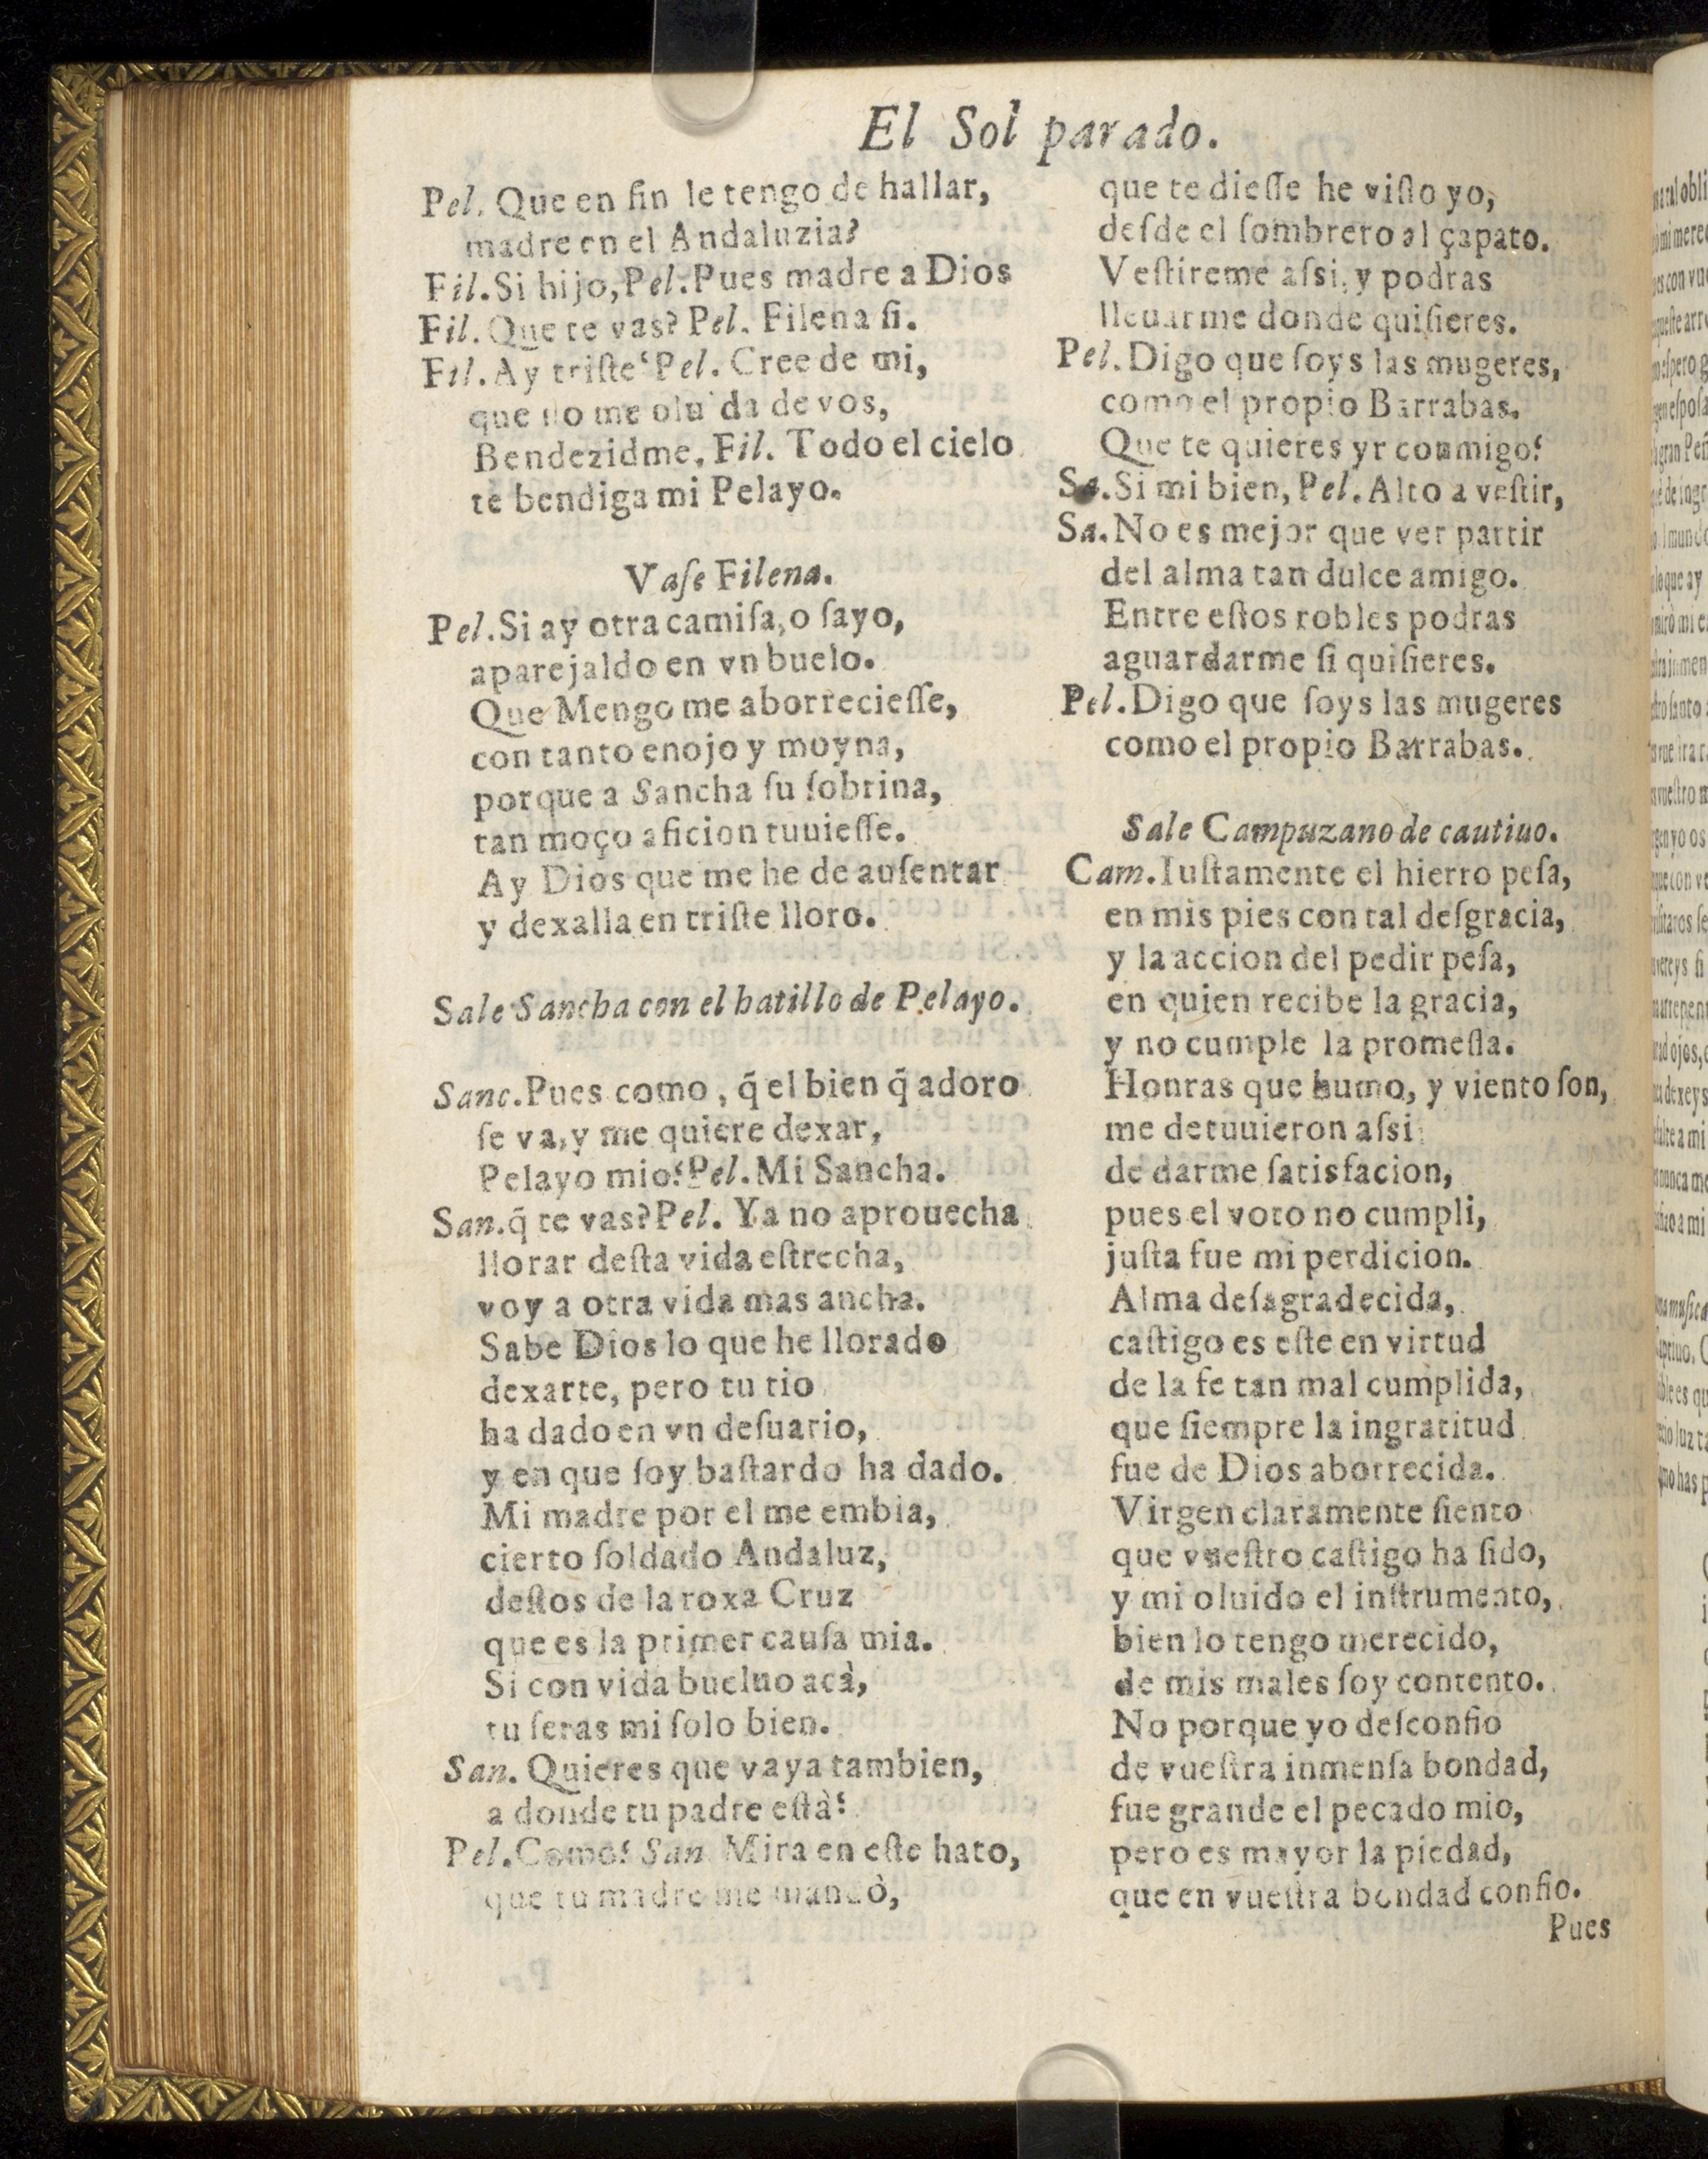 El Sol parado.
Pel. Que en fin le tengo de hallar,
madre en el Andaluzia?
Fil. Si hijo, Pel. Pues madre a Dios
Fil. Que te vas? Pel. Filena ſi.
Fil. Ay triſte? Pel. Cree de mi,
que no me olu da de vos,
Bendezidme, Fil. Todo el cielo
te bendiga mi Pelayo.
Vaſe Filena.
Pel. Si ay otra camiſa, o ſayo,
aparejaldo en vn buelo.
Que Mengo me aborrecieſſe,
con tanto enojo y moyna,
porque a Sancha ſu ſobrina,
tan moço aficion tuuieſſe.
Ay Dios que me he de auſentar
y dexalla en triſte lloro.
Sale Sancha con el hatillo de Pelayo.
Sanc. Pues como, q̃ el bien q̃ adoro
ſe va, y me quiere dexar,
Pelayo mio? Pel. Mi Sancha.
San. q̃ te vas? Pel. Ya no aprouecha
llorar deſta vida eſtrecha,
voy a otra vida mas ancha.
Sabe Dios lo que he llorado
dexarte, pero tu tio
ha dado en vn deſuario,
y en que ſoy baſtardo ha dado.
Mi madre por el me embia,
cierto ſoldado Andaluz,
deſtos de la roxa Cruz
que es la primer cauſa mia.
Si con vida bueluo acà,
tu ſeras mi ſolo bien.
San. Quieres que vaya tambien,
a donde tu padre eſtà?
Pel. Como? San. Mira en eſte hato,
que tu madre me mandò,
que te dieſſe he viſto yo,
deſde el ſombrero al çapato.
Veſtireme aſsi, y podras
lleuarme donde quiſieres.
Pel. Digo que ſoys las mugeres,
como el propio Barrabas.
Que te quieres yr conmigo?
Sa. Si mi bien, Pel. Alto a veſtir,
Sa. No es mejor que ver partir
del alma tan dulce amigo.
Entre eſtos robles podras
aguardarme ſi quiſieres.
Pel. Digo que ſoys las mugeres
como el propio Barrabas.
Sale Campuzano de cautiuo.
Cam. Iuſtamente el hierro peſa,
en mis pies con tal deſgracia,
y la accion del pedir peſa,
en quien recibe la gracia,
y no cumple la promeſſa.
Honras que humo, y viento ſon,
me detuuieron aſsi
de darme ſatisfacion,
pues el voto no cumpli,
juſta fue mi perdicion.
Alma deſagradecida,
caſtigo es eſte en virtud
de la fe tan mal cumplida,
que ſiempre la ingratitud
fue de Dios aborrecida.
Virgen claramente ſiento
que vueſtro caſtigo ha ſido,
y mi oluido el inſtrumento,
bien lo tengo merecido,
de mis males ſoy contento.
No porque yo deſconfio
de vueſtra inmenſa bondad,
fue grande el pecado mio,
pero es mayor la piedad,
que en vueſtra bondad confio.
Pues